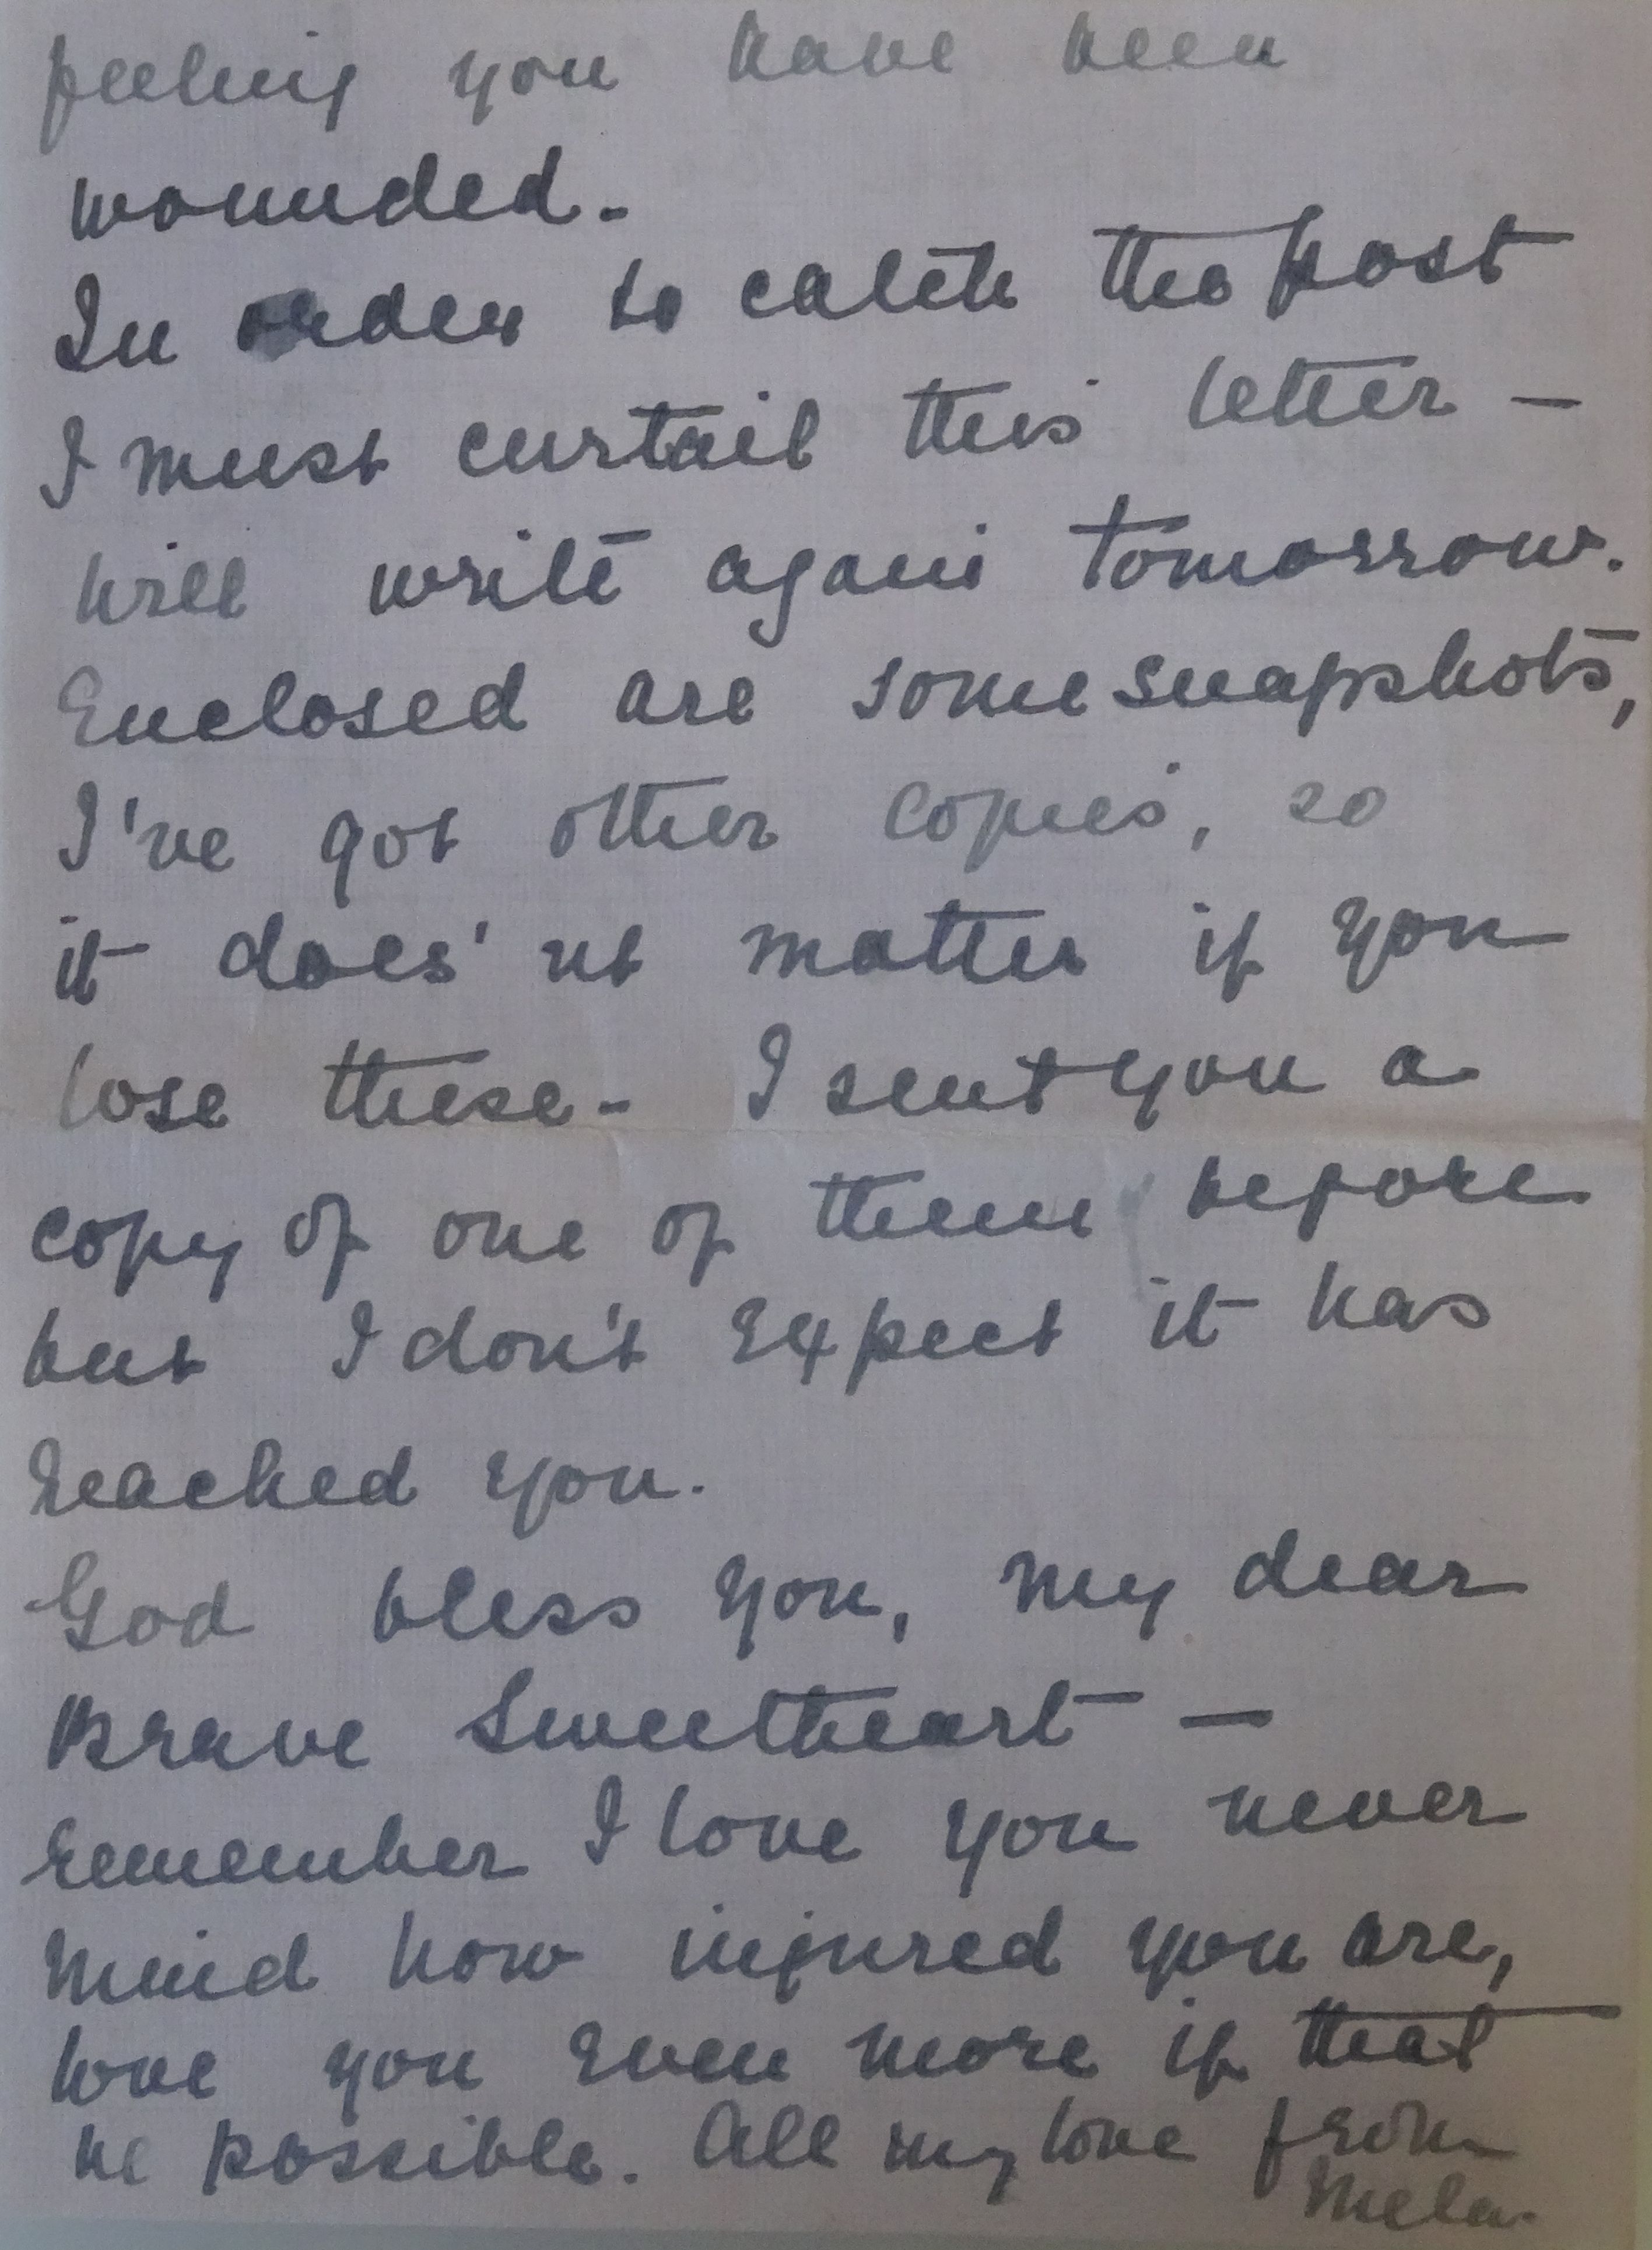 feeling you have been
wounded -
In order to catch the post
I must curtail this letter —
will write again tomorrow.
Enclosed are some snapshots,
I've got other copies, so
it does'nt matter if you
lose these - I sent you a
copy of one of them before
but I don't expect it has
reached you.
God bless you, my dear
Brave Sweetheart —
remember I love you never
mind how injured you are,
love you even more if that
be possible. All my love from
Mela.